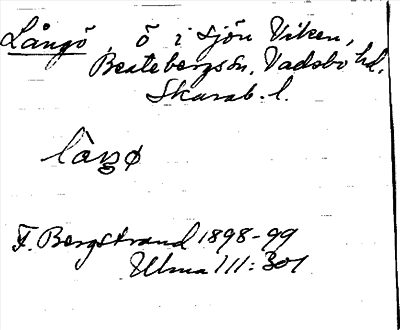 Långö, ö i sjön Viken,
Beatebergs sn. Vadsbo hd.
Skarab. l.
låŋø
F. Bergstrand 1898-99
Ulma 111:301